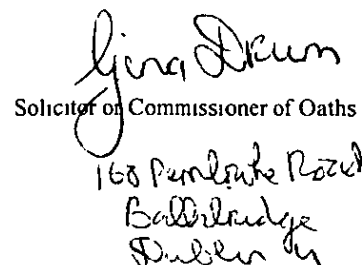 Gina
Solicitor or Commissioner of Oaths
Pembroke Road
Ballsbridge
Dublin 4